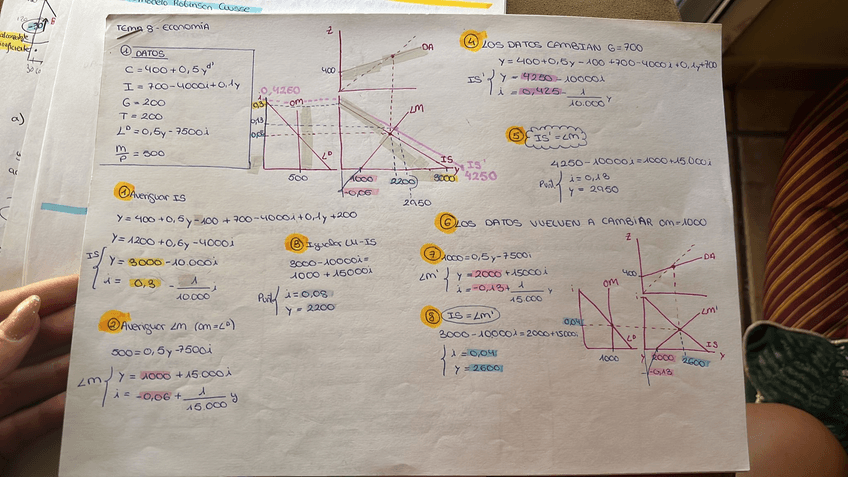 modelo Robinson Crusoe
a)
TEMA 8 - ECONOMÍA
① DATOS
C = 400 + 0,5 y^d
I = 700 - 4000i + 0,1y
G = 200
T = 200
L^D = 0,5y - 7500i
M/P = 500
Z
DA
400
i
0,4250
0,3
OM
0,13
L^D
500
LM
IS
IS'
4250
1000
-0,06
2200
3000
y
2950
① Averiguar IS
y = 400 + 0,5y - 100 + 700 - 4000i + 0,1y + 200
y = 1200 + 0,6y - 4000i
IS { y = 3000 - 10.000i
i = 0,3 - 1/10.000 i
② Averiguar LM (OM = L^D)
500 = 0,5y - 7500i
LM { y = 1000 + 15.000i
i = -0,06 + 1/15.000 y
③ Igualar LM-IS
3000 - 10000i =
1000 + 15000i
{ i = 0,08
y = 2200
④ LOS DATOS CAMBIAN G = 700
y = 400 + 0,5y - 100 + 700 - 4000i + 0,1y + 700
IS' { y = 4250 - 10000i
i = 0,425 - 1/10.000 y
⑤ IS' = LM
4250 - 10000i = 1000 + 15.000i
{ i = 0,13
y = 2950
⑥ LOS DATOS VUELVEN A CAMBIAR OM = 1000
⑦ 1000 = 0,5y - 7500i
LM' { y = 2000 + 15000i
i = -0,13 + 1/15.000 y
⑧ IS = LM'
3000 - 10000i = 2000 + 15000i
{ i = 0,04
y = 2600
Z
DA
400
i
OM
0,04
L^D
1000
y
i
LM'
IS
y
2000
2600
-0,13